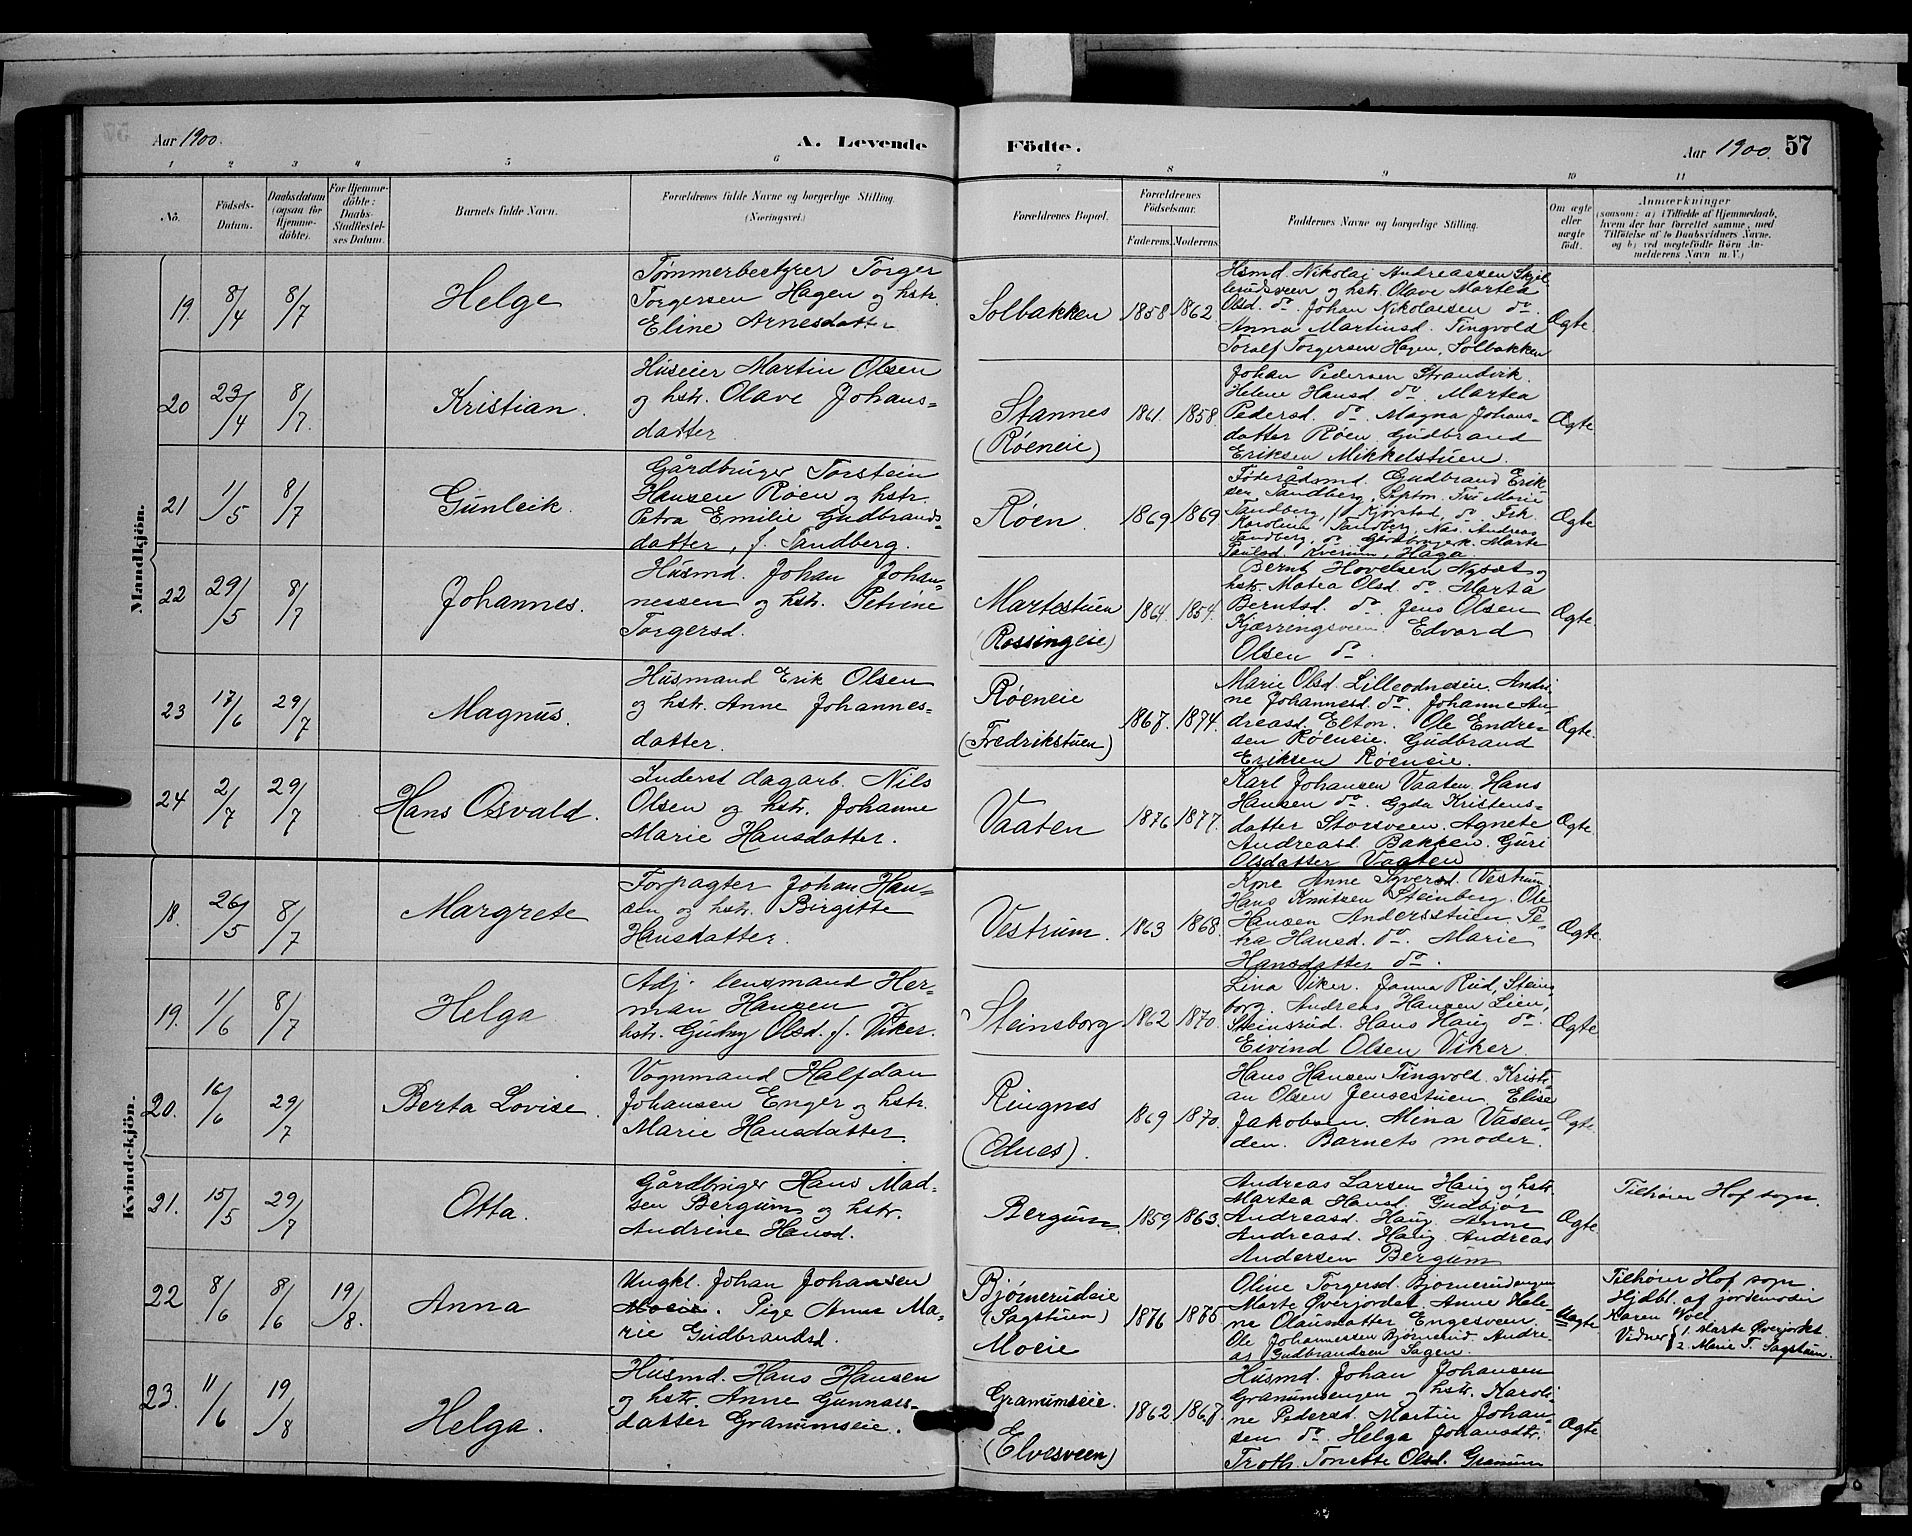 Aar 1900.
A. Levende
Födte.
Aar 1900.
57
1 2 3 4 5 6 7 8 9 10 11
No.
Födsels-Datum.
Daabsdatum (ogsaa for Hjemme-döbte).
For Hjemme-döbte: Daabs-Stadfæstel-ses Datum.
Barnets fulde Navn.
Forældrenes fulde Navne og borgerlige Stilling.
(Næringsvei.)
Forældrenes Bopæl.
Forældrenes Födselsaar.
Faderens. Moderens.
Faddernes Navne og borgerlige Stilling.
Om ægte eller uægte födt.
Anmærkninger
(saasom: a) i Tilfælde af Hjemmedaab,
hvem der har forrettet samme, med
Tilföielse af to Daabsvidners Navne,
og b) ved uægtefödte Börn An-
melderens Navn m. V.)
Mandkjön.
19. 8/4 8/7
Helge
Tømmerbestyrer Torger
Torgersen Hagen og hstr.
Eline Arnesdatter
Solbakken
1858 1862.
Hsmd. Nikolai Andreassen Skjel-
lerudsveen og hstr. Olave Martea
Olsd. do. Johan Nikolaisen do.
Anna Martinsd. Tingvold
Toralf Torgersen Hagen, Solbakken
Ægte.
20 23/4 8/7.
Kristian.
Huseier Martin Olsen
og hstr. Olave Johans-
datter.
Stannes
(Røeneie)
1861. 1858.
Johan Pedersen Strandvik.
Helene Hansd. do. Martea
Pedersd. do. Magna Johans-
datter Røen. Gudbrand
Eriksen Mikkelstuen.
Ægte
21 1/5 8/7
Gunleik.
Gårdbruger Torstein
Hansen Røen og hstr.
Petra Emilie Gudbrands-
datter, f. Sandberg.
Røen.
1869 1869
Føderådsmd. Gudbrand Erik-
sen Sandberg, Fru Marie
Sandberg, Kjørstad, do Frk.
Karoline Sandberg, Næs. Andreas
Sandberg, do Gårdbrugerk. Marte
Paulsd. Kverum, Haga.
Ægte
22 29/5 8/7
Johannes.
Husmd. Johan Johan-
nessen og hstr. Petrine
Torgersd.
Martestuen
(Rossingeie)
1864. 1854.
Bernt Hovelsen Nysæt og
hstr. Matea Olsd. do. Marta
Berntsd. do. Jens Olsen
Kjærringsveen. Edvard
Olsen do.
Ægte
23 17/6 29/7
Magnus.
Husmand Erik Olsen
og hstr. Anne Johannes-
datter.
Røeneie
(Fredrikstuen)
1867. 1874.
Marie Olsd. Lilleodneseie. Andri-
ne Johannesd. do. Johanne An-
dreasd. Elton. Ole Endre-
sen Røeneie. Gudbrand
Eriksen Røeneie.
Ægte.
24 2/7 29/7
Hans Osvald.
Inderst dagarb. Nils
Olsen og hstr. Johanne
Marie Hansdatter.
Vaaten
1876 1877.
Karl Johansen Vaaten. Hans
Hansen do. Gyda Kristens-
datter Storsveen. Agnete
Andreasd. Bakken. Guri
Olsdatter Vaaten
Ægte.
Kvindekjön.
18. 26/5 8/7
Margrete
Forpagter Johan Han-
sen og hstr. Birgitte
Hansdatter.
Vestrum.
1863 1868.
Kone Anne Syversd. Vestrum.
Hans Knutsen Steinberg. Ole
Hansen Andersstuen. Pe-
tra Hansd. do. Marie
Hansdatter do.
Ægte.
19. 1/6 8/7
Helga
Adj. lensmand Her-
man Hansen og
hstr. Gudny Olsd. f. Viker.
Steinsborg
1862 1870.
Lina Viker. Janna Rud, Steins-
borg. Andreas Hansen Lien,
Steinsrud. Hans Haug do.
Eivind Olsen Viker.
Ægte
20. 16/6 29/7
Berta Lovise.
Vognmand Halfdan
Johansen Enger og hstr.
Marie Hansdatter.
Ringnes
(Odnes).
1869 1870.
Hans Hansen Tingvold. Kristi-
an Olsen Jensestuen. Elise
Jakobsen. Mina Vasen-
den. Barnets moder.
Ægte.
21. 15/5 29/7
Otta.
Gårdbruger Hans Mad-
sen Bergum og hstr.
Andrine Hansd.
Bergum.
1859 1863.
Andreas Larsen Haug og hstr.
Martea Hansd. Gudbjør
Andreasd. Haug. Anne
Andreasd. Haug. Andreas
Andersen Bergum
Ægte.
Tilhører Hof sogn.
22 8/6 8/6 19/8.
Anna
Ungkl. Johan Johansen
Moeie. Pige Anne Ma-
rie Gudbrandsd.
Bjørnerudeie
(Sagstuen)
Moeie
1876 1875.
Oline Torgersd. Bjørnerudengen
Marte Øverjordet. Anne Hele-
ne Olausdatter Engesveen.
Ole Johannessen Bjørnerud. Andre-
as Gudbrandsen Sagen.
Uægte.
Tilhører Hof sogn
Hjdbt. af jordemoder
Karen Woll
Vidner 1. Marte Øverjordet.
2. Marie T. Sagstuen.
23. 11/6 19/8
Helga.
Husmd. Hans Hansen
og hstr. Anne Gunnars-
datter Granumseie.
Granumseie.
(Elvesveen)
1862 1867.
Husmd. Johan Johansen
Granumsengen og hstr. Karoli-
ne Pedersd. Martin Johan-
sen do. Helga Johansdtr.
Troth. Tonette Olsd. Granum
Ægte